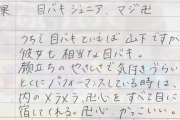 果 目バキジュニア、マジ卍
うちで目バキといえば山下ですが
彼女も相当な目バキ。
顔立ちのやさしさで気付きづらい
とくにパフォーマンスしている時は、
内のメラメラ、卍心をすべて目に
宿してくれる。卍心、かっこいい。